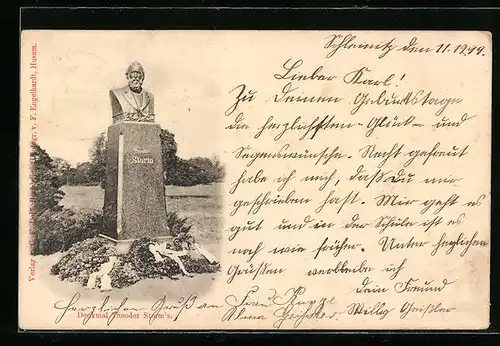 Schleinitz den 11.19.99.
Lieber Karl!
Zu Deinem Geburtstage
die herzlichsten Glück- und
Segenswünsche. Recht gefreut
habe ich mich, daß Du mir
geschrieben hast. Mir geht es
gut und in der Schule ist es
noch wie früher. Unter herzlichen
Grüßen verbleibe ich
dein Freund
Willy Geißler
Herzlichen Gruß an Frau
Alma Geißler
Storm
Denkmal Theodor Storm's.
Verlag v. F. Engelhardt, Husum.